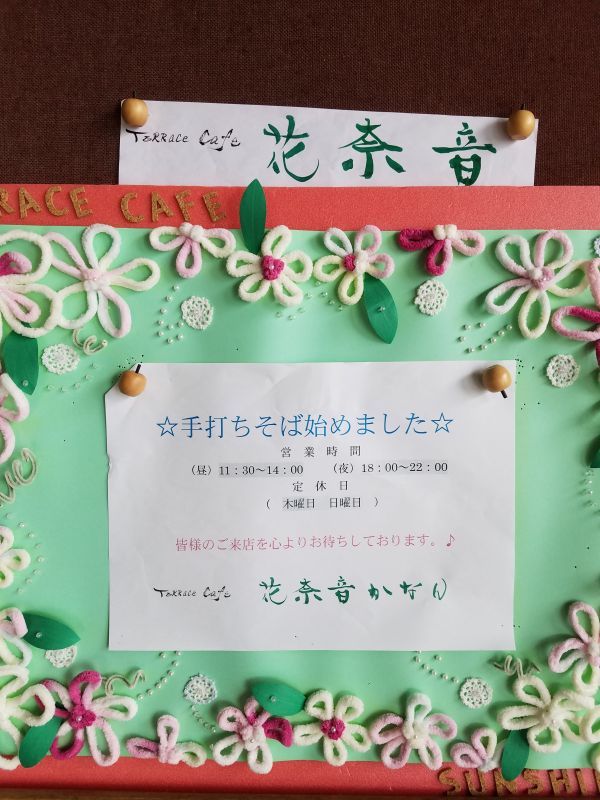 Terrace Cafe 花奈音
RRACE CAFE
☆手打ちそば始めました☆
営 業 時 間
（昼）11：30～14：00　（夜）18：00～22：00
定 休 日
（ 木曜日 日曜日 ）
皆様のご来店を心よりお待ちしております。♪
Terrace Cafe 花奈音かなん
SUNSHIN